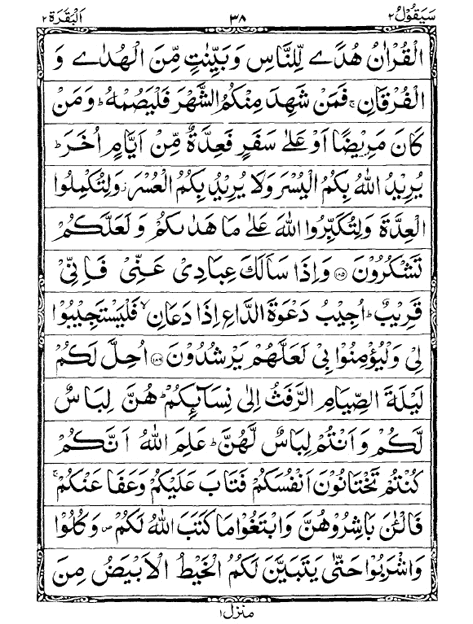 سَيَقُوْلُ ٢ ٣٨ اَلْبَقَرَة ٢
الْقُرْاٰنُ هُدًى لِّلنَّاسِ وَبَيِّنٰتٍ مِّنَ الْهُدٰى وَ
الْفُرْقَانِ ۚ فَمَنْ شَهِدَ مِنْكُمُ الشَّهْرَ فَلْيَصُمْهُ ؕ وَمَنْ
كَانَ مَرِيْضًا اَوْ عَلٰى سَفَرٍ فَعِدَّةٌ مِّنْ اَيَّامٍ اُخَرَ ؕ
يُرِيْدُ اللّٰهُ بِكُمُ الْيُسْرَ وَلَا يُرِيْدُ بِكُمُ الْعُسْرَ ؗ وَلِتُكْمِلُوا
الْعِدَّةَ وَلِتُكَبِّرُوا اللّٰهَ عَلٰى مَا هَدٰىكُمْ وَ لَعَلَّكُمْ
تَشْكُرُوْنَ ﴿۱۸۵﴾ وَاِذَا سَاَلَكَ عِبَادِيْ عَنِّيْ فَاِنِّيْ
قَرِيْبٌ ؕ اُجِيْبُ دَعْوَةَ الدَّاعِ اِذَا دَعَانِ ۙ فَلْيَسْتَجِيْبُوْا
لِيْ وَلْيُؤْمِنُوْا بِيْ لَعَلَّهُمْ يَرْشُدُوْنَ ﴿۱۸۶﴾ اُحِلَّ لَكُمْ
لَيْلَةَ الصِّيَامِ الرَّفَثُ اِلٰى نِسَآئِكُمْ ؕ هُنَّ لِبَاسٌ
لَّكُمْ وَ اَنْتُمْ لِبَاسٌ لَّهُنَّ ؕ عَلِمَ اللّٰهُ اَنَّكُمْ
كُنْتُمْ تَخْتَانُوْنَ اَنْفُسَكُمْ فَتَابَ عَلَيْكُمْ وَعَفَا عَنْكُمْ ۚ
فَالْـٰٔنَ بَاشِرُوْهُنَّ وَابْتَغُوْا مَا كَتَبَ اللّٰهُ لَكُمْ ۪ وَكُلُوْا
وَاشْرَبُوْا حَتّٰى يَتَبَيَّنَ لَكُمُ الْخَيْطُ الْاَبْيَضُ مِنَ
منزل ١